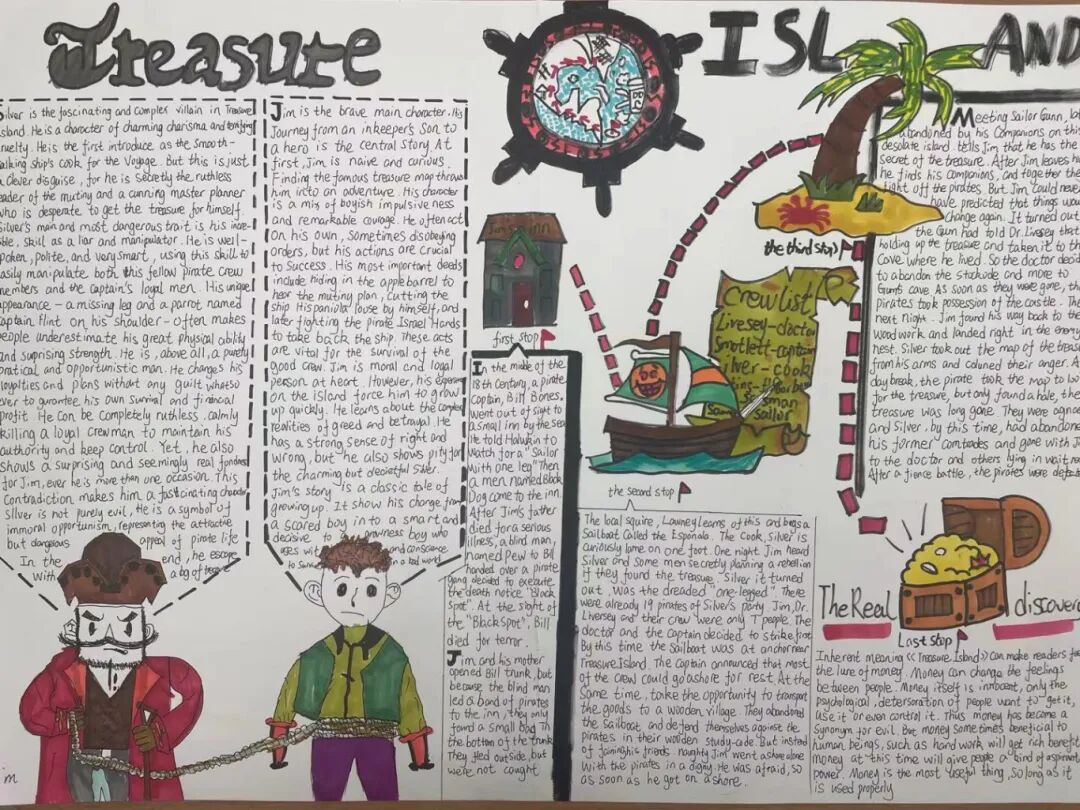 Treasure
ISLAND
Silver is the fascinating and complex villain in Treasure
Island. He is a character of charming charisma and terrifying
cruelty. He is the first introduce as the smooth-
talking ship's cook for the voyage. But this is just
a clever disguise, for he is secretly the ruthless
leader of the mutiny and a cunning master planner
who is desperate to get the treasure for himself.
Silver's main and most dangerous trait is his incre-
dible, skill as a liar and manipulator. He is well-
spoken, polite, and very smart, using this skill to
easily manipulate both this fellow pirate crew
members and the captain's loyal men. His unique
appearance – a missing leg and a parrot named
Captain Flint on his shoulder – often makes
people underestimate his great physical ability
and suprising strength. He is, above all, a purely
practical and opportunistic man. He changes his
loyalties and plans without any guilt whatso
ever to garantee his own surnial and financial
profit. He can be completely ruthless, calmly
killing a loyal crewman to maintain his
authority and keep control. Yet, he also
shows a surprising and seemingly real fondness
for Jim, ever he is more than one occasion. This
contradiction makes him a fastcinating character
Silver is not purely evil, He is a symbol of
immoral opportunism, representing the attractive
but dangerous appeal of pirate life
In the end, he escape
with a bag of
Jim is the brave main character. His
Journey from an inkeeper's son to
a hero is the central story. At
first, Jim is naive and curious.
Finding the famous treasure map throws
him into an adventure. His character
is a mix of boyish impulsiveness
and remarkable courage. He often act
on his own, sometimes disobeying
orders, but his actions are crucial
to success. His most important deeds
include hiding in the apple barrel to
hear the mutiny plan, cutting the
ship Hispaniola loose by himself, and
later fighting the pirate Israel Hands
to take back the ship. These acts
are vital for the survival of the
good crew. Jim is moral and loyal
person at heart. However, his
on the island force him to grow
up quickly. He learns about the complex
realities of greed and betrayal. He
has a strong sense of right and
wrong, but he also shows pity for
the charming but deceitful Silver.
Jim's story is a classic tale of
growing up. It show his change from
a scared boy in to a smart and
decisive to boy who
uses wit and conscience
to in a
Jim's inn
first stop
In the middle of the
18th century, a pirate
Captain, Bill Bones.
went out of sight to
a small inn by the sea
He told to
watch for a "Sailor
with one leg" Then
a men named Black
Dog came to the inn.
After Jim's father
died for a serious
illness, a blind man,
named Pew to Bill
handed over a pirate
gang decided to execute
the death notice "Black
Spot". At the sight of
the "Black Spot", Bill
died for terror.
Jim and his mother
opened Bill trunk, but
because the blind man
led a band of pirates
to the inn, they only
found a small bag Th
the bottom of the trunk
They fled outside, but
were not caught
Crew list
Livesey-doctor
Smotlett-captain
silver-cook
sailor
the second stop
The local squire, learns of this and buys a
Sailboat Called the Española. The Cook, Silver is
curiously lame on one foot. One night Jim heard
Silver and Some men secretly planning a rebellion
if they found the treasure, Silver it turned
out, was the dreaded "one-legged". There
were already 19 pirates of Silver's party, Jim, Dr.
Liversey and their crew were only 7 people. The
doctor and the captain decided to strike first
By this time the sailboat was at anchor near
Treasure Island. The Captain announced that most
of the crew could go ashore for rest. At the
Same time, take the opportunity to transport
the goods to a wooden village. They abandoned
the sailboat, and defend themselves against the
pirates in their wooden study-cade. But instead
of joining his friends, naughty Jim went ashore alone
With the pirates in a digny. He was afraid, so
as soon as he got on ashore.
the third stop
Meeting Sailor Gunn, long
abandoned by his Companions on this
desolate island. tells Jim that he has the
secret of the treasure. After Jim leaves him
he finds his companions, and together they
fight off the pirates. But Jim could never
have predicted that things would
change again. It turned out
the Gunn had told Dr. Livesey that
holding up the treasure and taken it to the
Cave where he lived. So the doctor decided
to abandon the stockade and move to
Gunn's cave. As soon as they were gone, the
pirates took possession of the castle. The
next night. Jim found his way back to the
wood work and landed right in the enemy
nest. Silver took out the map of the treasure
from his arms and calmed their anger. At
day break, the pirate took the map to look
for the treasure, but only found a hole, the
treasure was long gone. They were agree
and Silver, by this time, had abandoned
his former comtrades and gone with Jim
to the doctor and others lying in wait near
After a fierce battle, the pirates were defeated
The Real discovery
Last stop
Inherent meaning 《Treasure Island》 can make readers feel
the lure of money. Money can change the feelings
between people. Money itself is innocent, only the
psychological, deterioration of people want to "get it,
use it" or even control it. Thus money has become a
Synonym for evil. But money some times beneficial to
human beings, such as hard work will get rich benefit
money at this time will give people a kind of aspiration
power. Money is the most useful thing, so long as it
is used properly